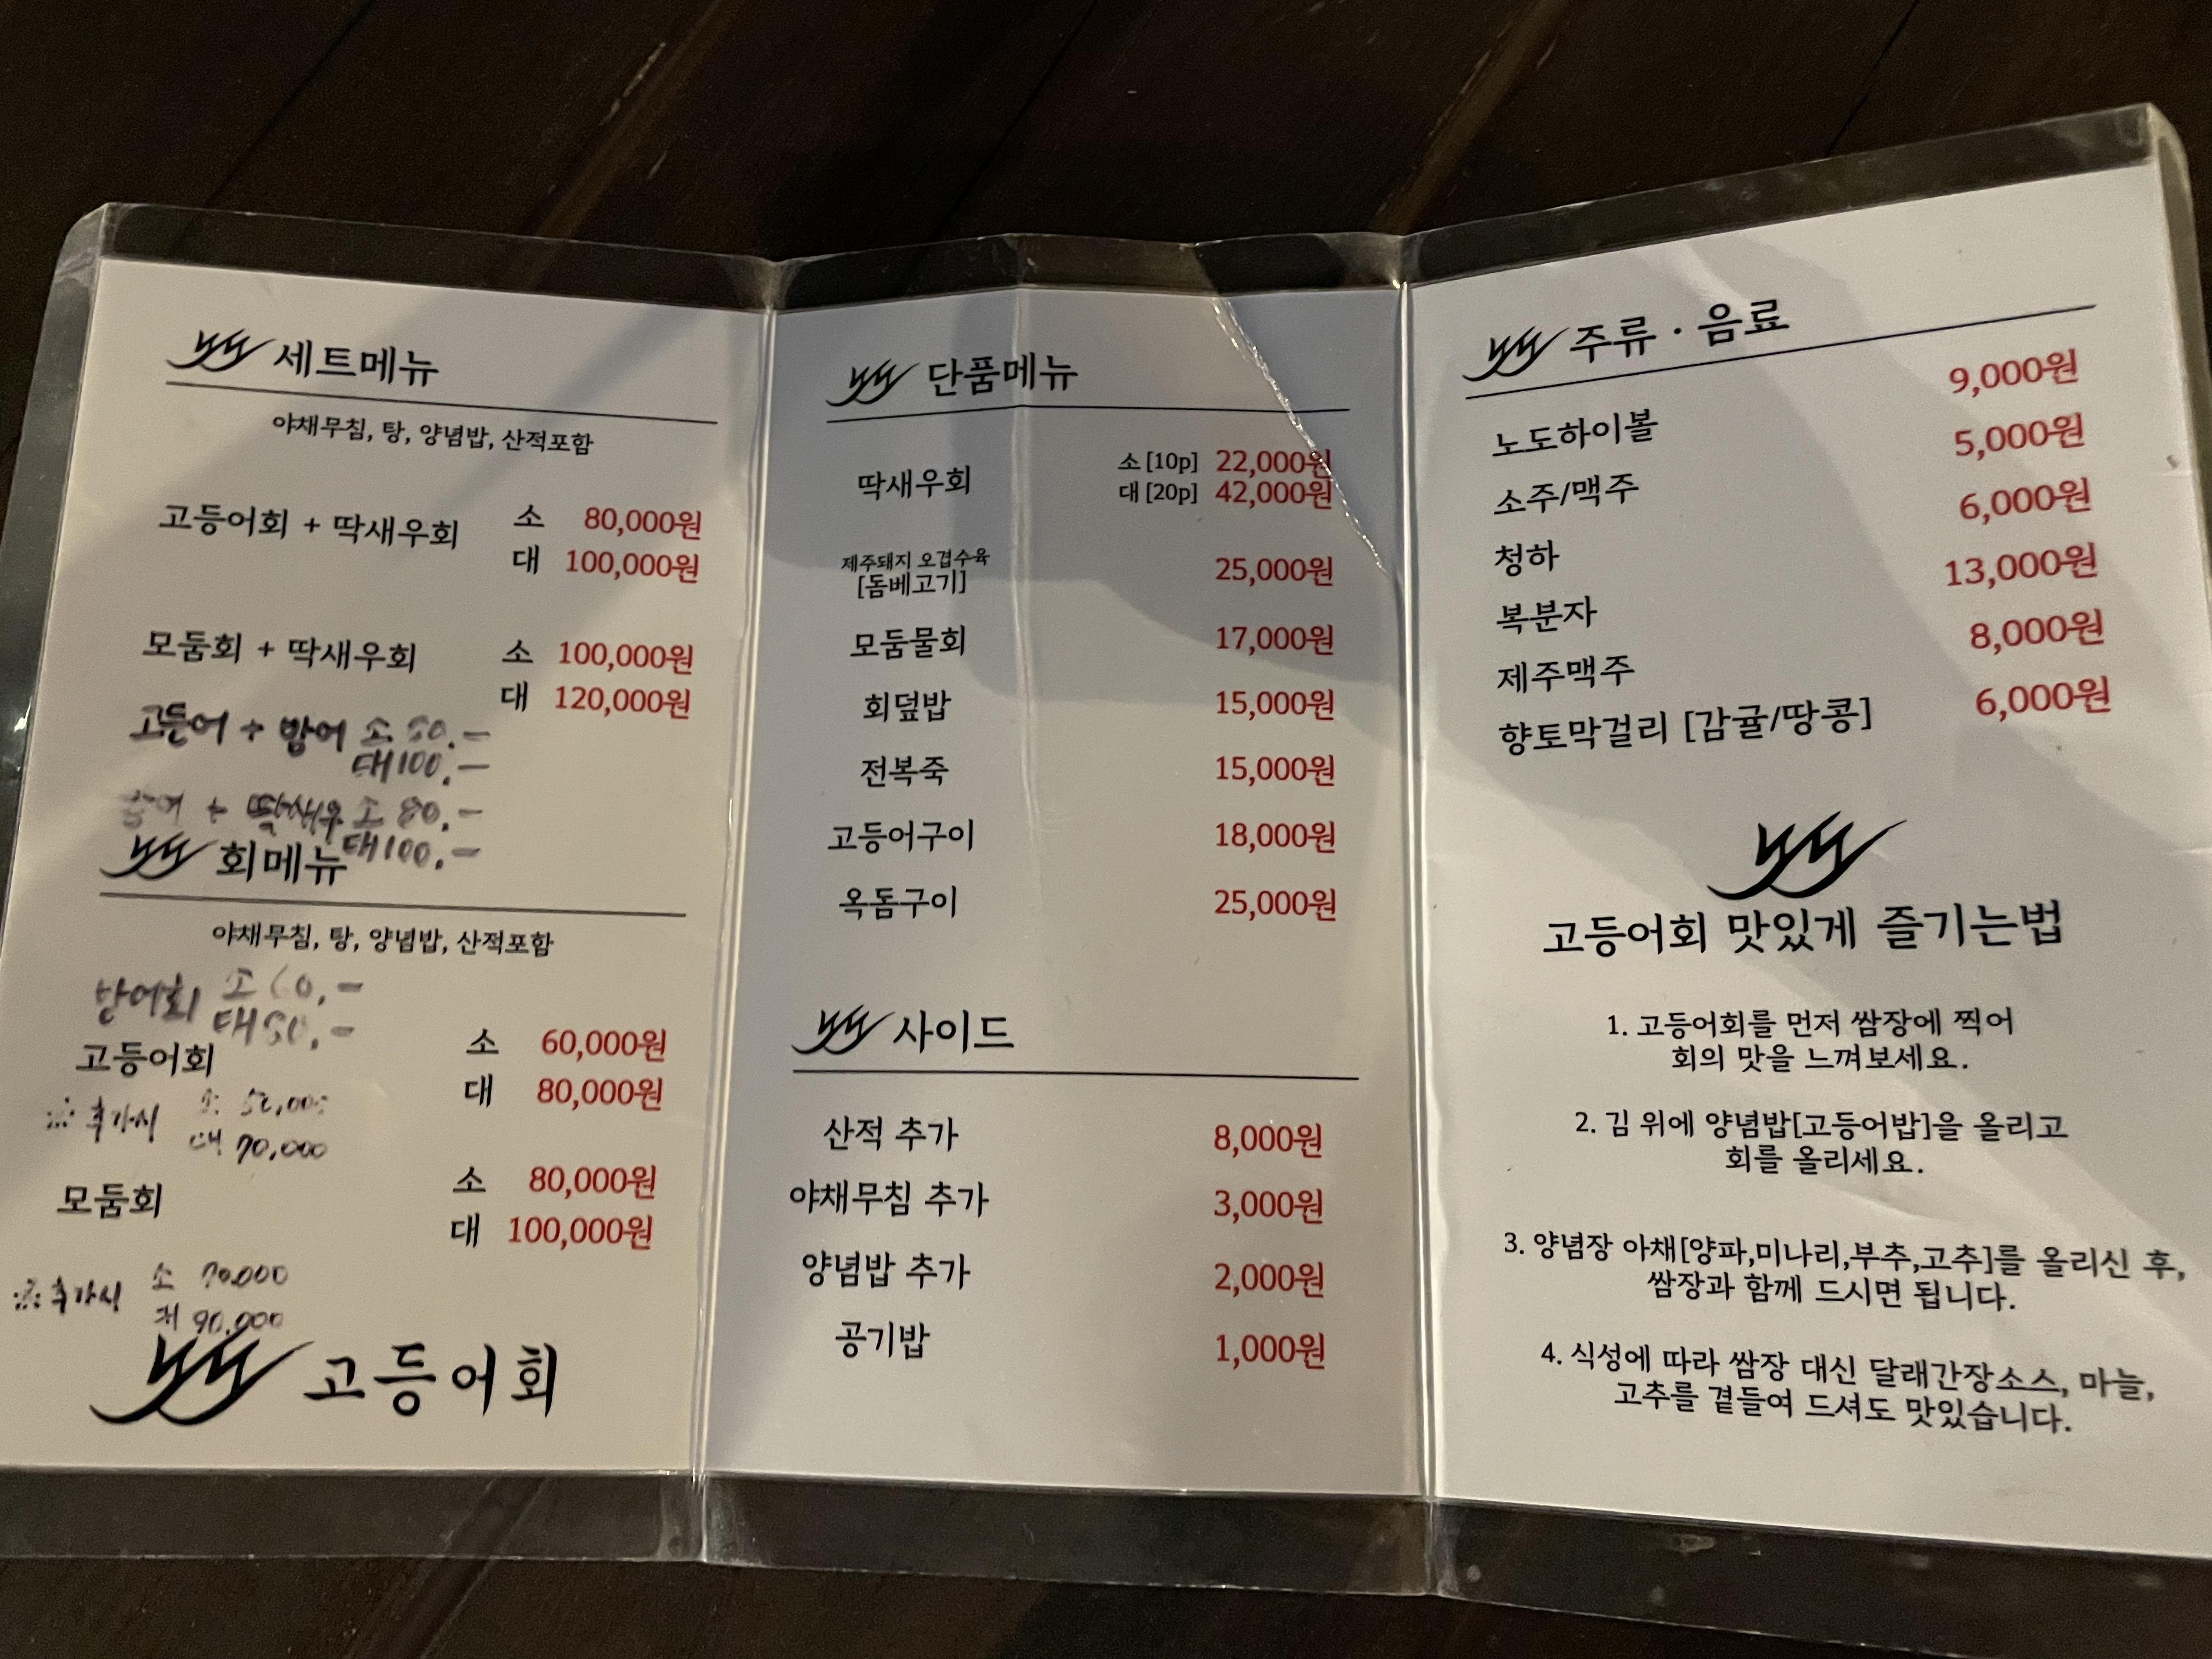 노도 세트메뉴
야채무침, 탕, 양념밥, 산적포함
고등어회 + 딱새우회 소 80,000원
대 100,000원
모둠회 + 딱새우회 소 100,000원
대 120,000원
고등어 + 방어 소 80.-
대 100.-
방어 + 딱새우 소 80.-
대 100.-
노도 회메뉴
야채무침, 탕, 양념밥, 산적포함
방어회 소 60.-
대 80.-
고등어회 소 60,000원
대 80,000원
※ 추가시 소
대 70,000
모둠회 소 80,000원
대 100,000원
※ 추가시 소 70,000
대 90,000
노도 고등어회
노도 단품메뉴
딱새우회 소 [10p] 22,000원
대 [20p] 42,000원
제주돼지 오겹수육
[돔베고기] 25,000원
모둠물회 17,000원
회덮밥 15,000원
전복죽 15,000원
고등어구이 18,000원
옥돔구이 25,000원
노도 사이드
산적 추가 8,000원
야채무침 추가 3,000원
양념밥 추가 2,000원
공기밥 1,000원
노도 주류 · 음료
노도하이볼 9,000원
소주/맥주 5,000원
청하 6,000원
복분자 13,000원
제주맥주 8,000원
향토막걸리 [감귤/땅콩] 6,000원
노도
고등어회 맛있게 즐기는법
1. 고등어회를 먼저 쌈장에 찍어
회의 맛을 느껴보세요.
2. 김 위에 양념밥[고등어밥]을 올리고
회를 올리세요.
3. 양념장 야채[양파,미나리,부추,고추]를 올리신 후,
쌈장과 함께 드시면 됩니다.
4. 식성에 따라 쌈장 대신 달래간장소스, 마늘,
고추를 곁들여 드셔도 맛있습니다.